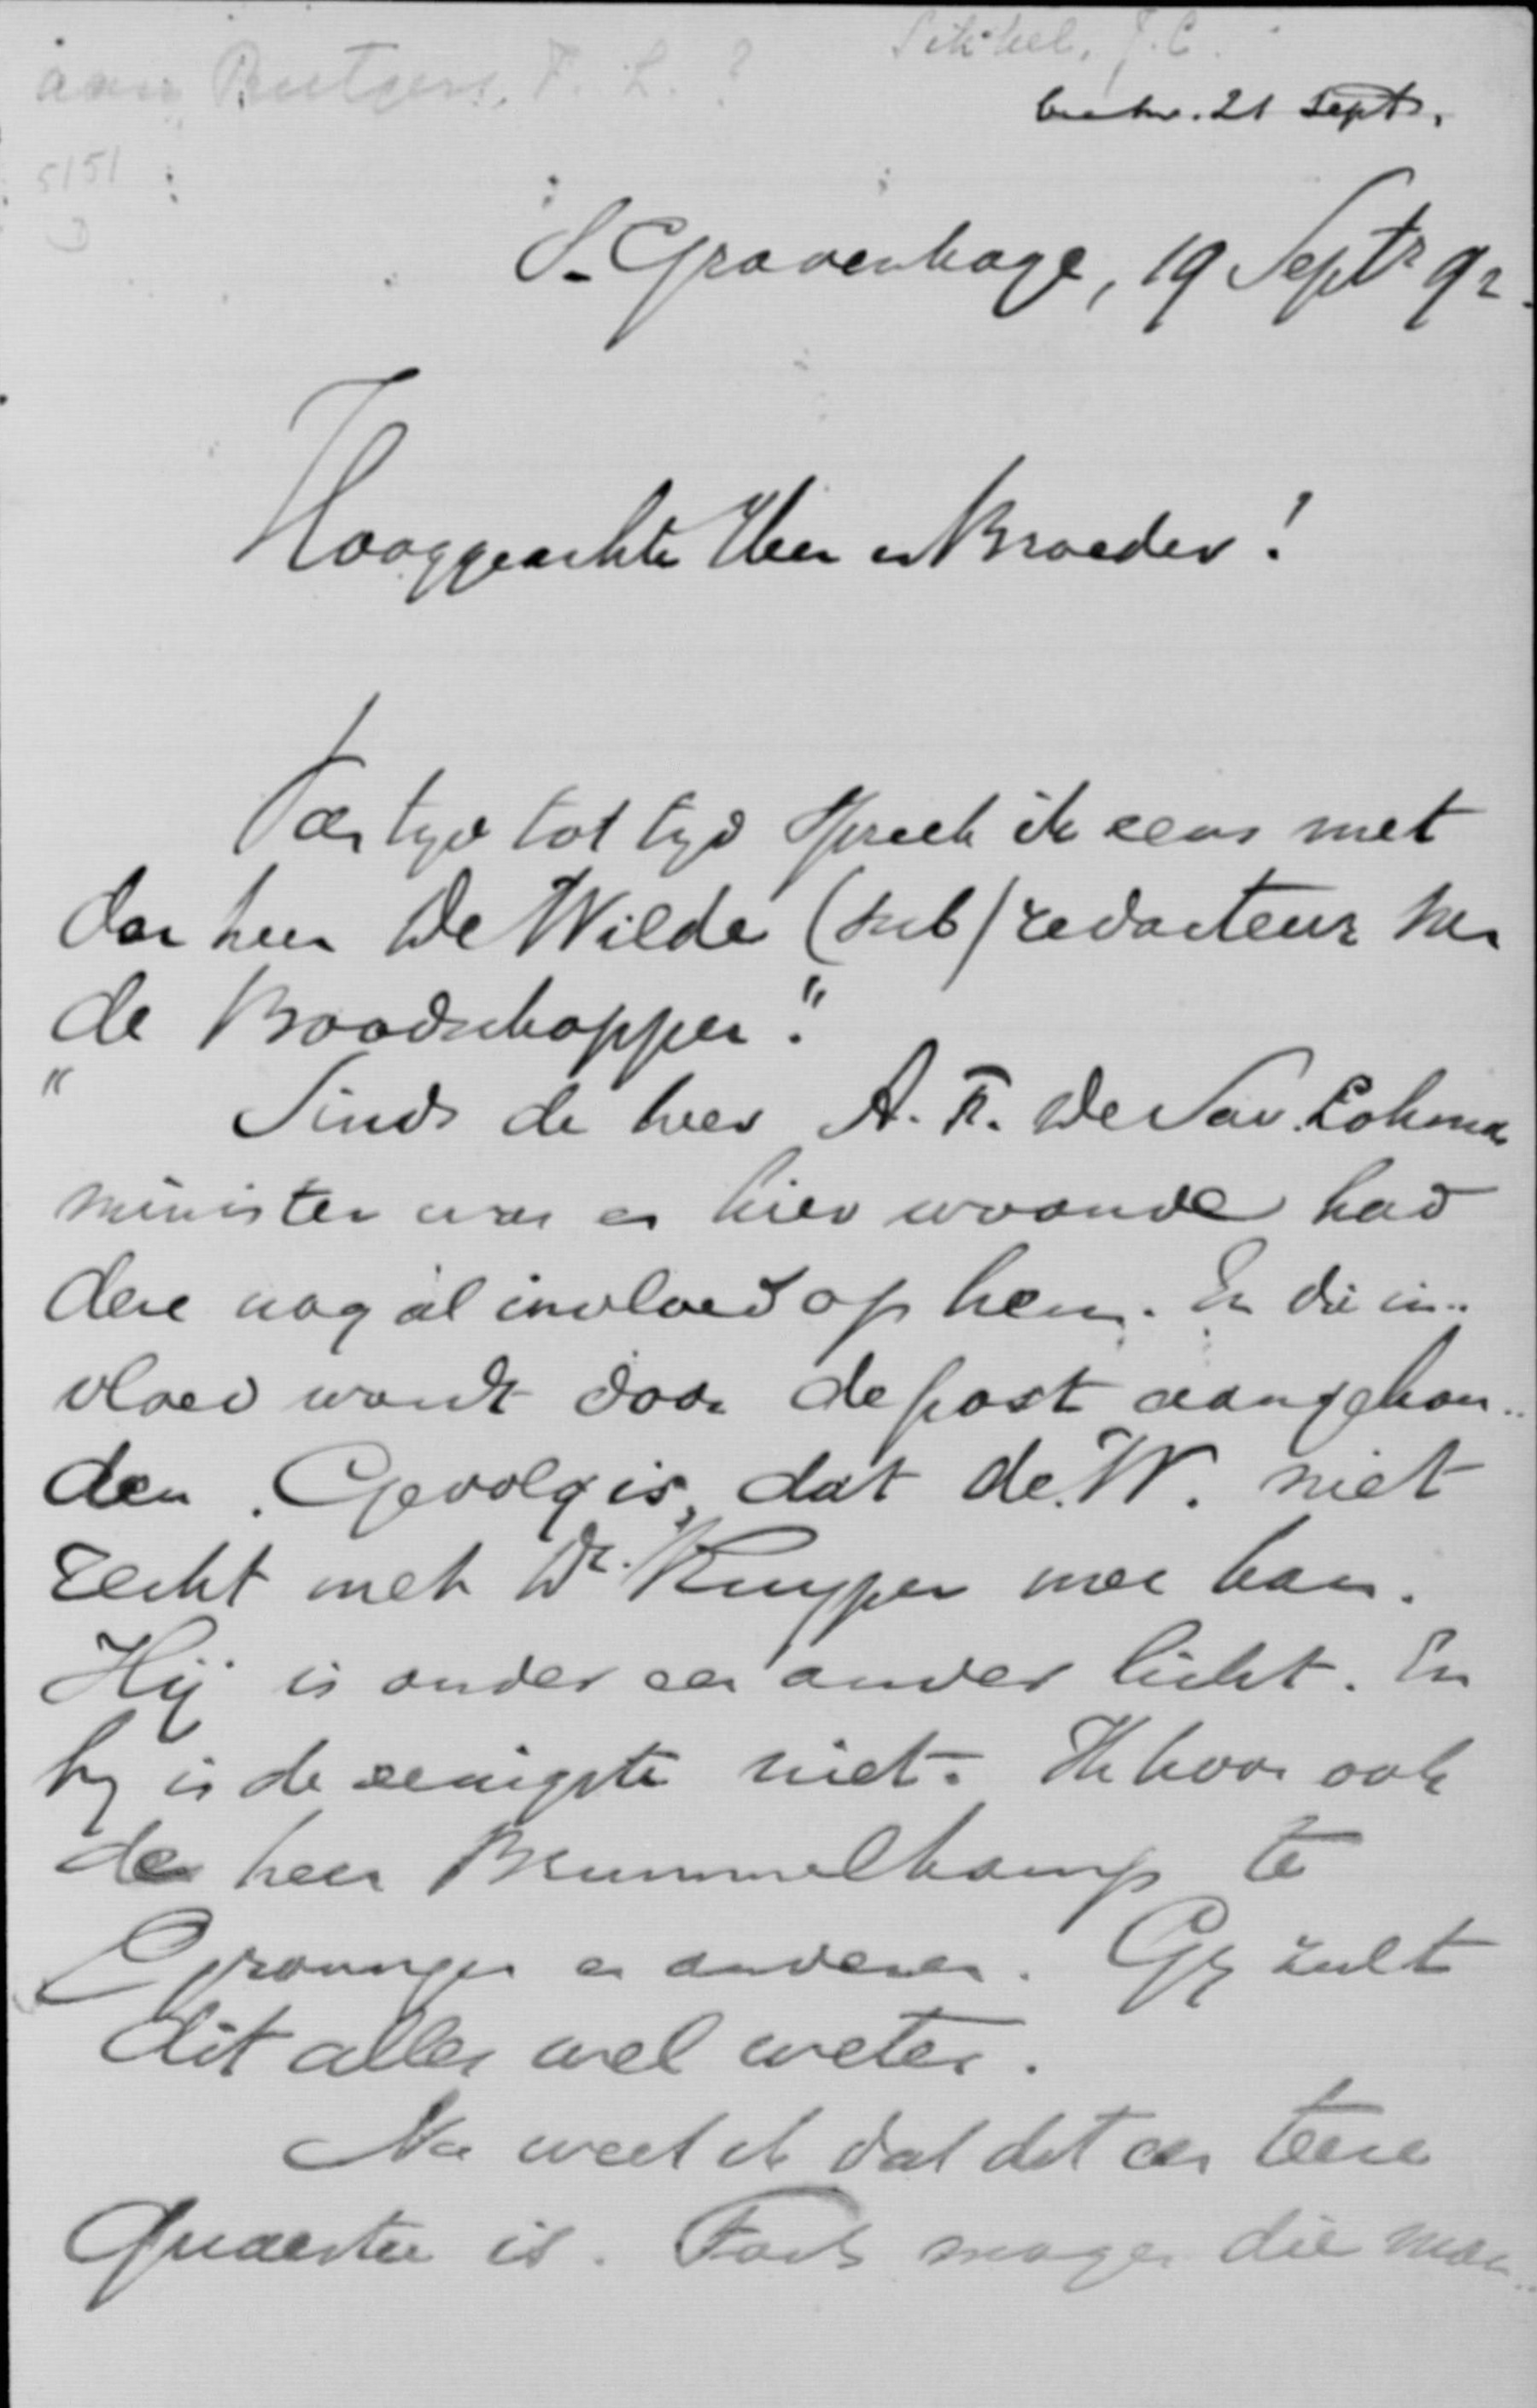 Sikkel, J.C.
aan Rutgers, F. L. ?
beantw. 21 Septr.
5151
S-Gravenhage, 19 Septr 92.
Hooggeachte Heer en Broeder!
Van tyd tot tyd spreek ik eens met
den heer De Wilde (sub) redacteur van
de Boodschapper."
" Sinds de heer A. F. De Sav. Lohman
minister was en hier woonde had
deze nog al invloed op hem. En die in-
vloed wordt door de post aangehou-
den. Gevolg is, dat de W. niet
recht met Dr. Kuyper mee kan.
Hij is onder een ander licht. En
hy is de eenigste niet. Ik hoor ook
de heer Brummelkamp te
Groningen en anderen. Gy zult
dit alles wel weten.
Nu weet ik dat dit een teere
quaestie is. Toch mogen die man-